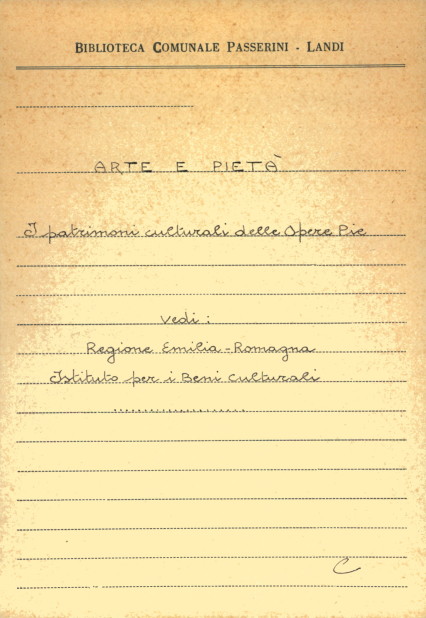 BIBLIOTECA COMUNALE PASSERINI - LANDI
ARTE E PIETÀ
I patrimoni culturali delle Opere Pie
Vedi:
Regione Emilia-Romagna
Istituto per i Beni Culturali
....................
C